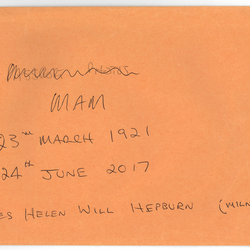 MAM
23RD MARCH 1921
24TH JUNE 2017
ES HELEN WILL HEPBURN (MILN